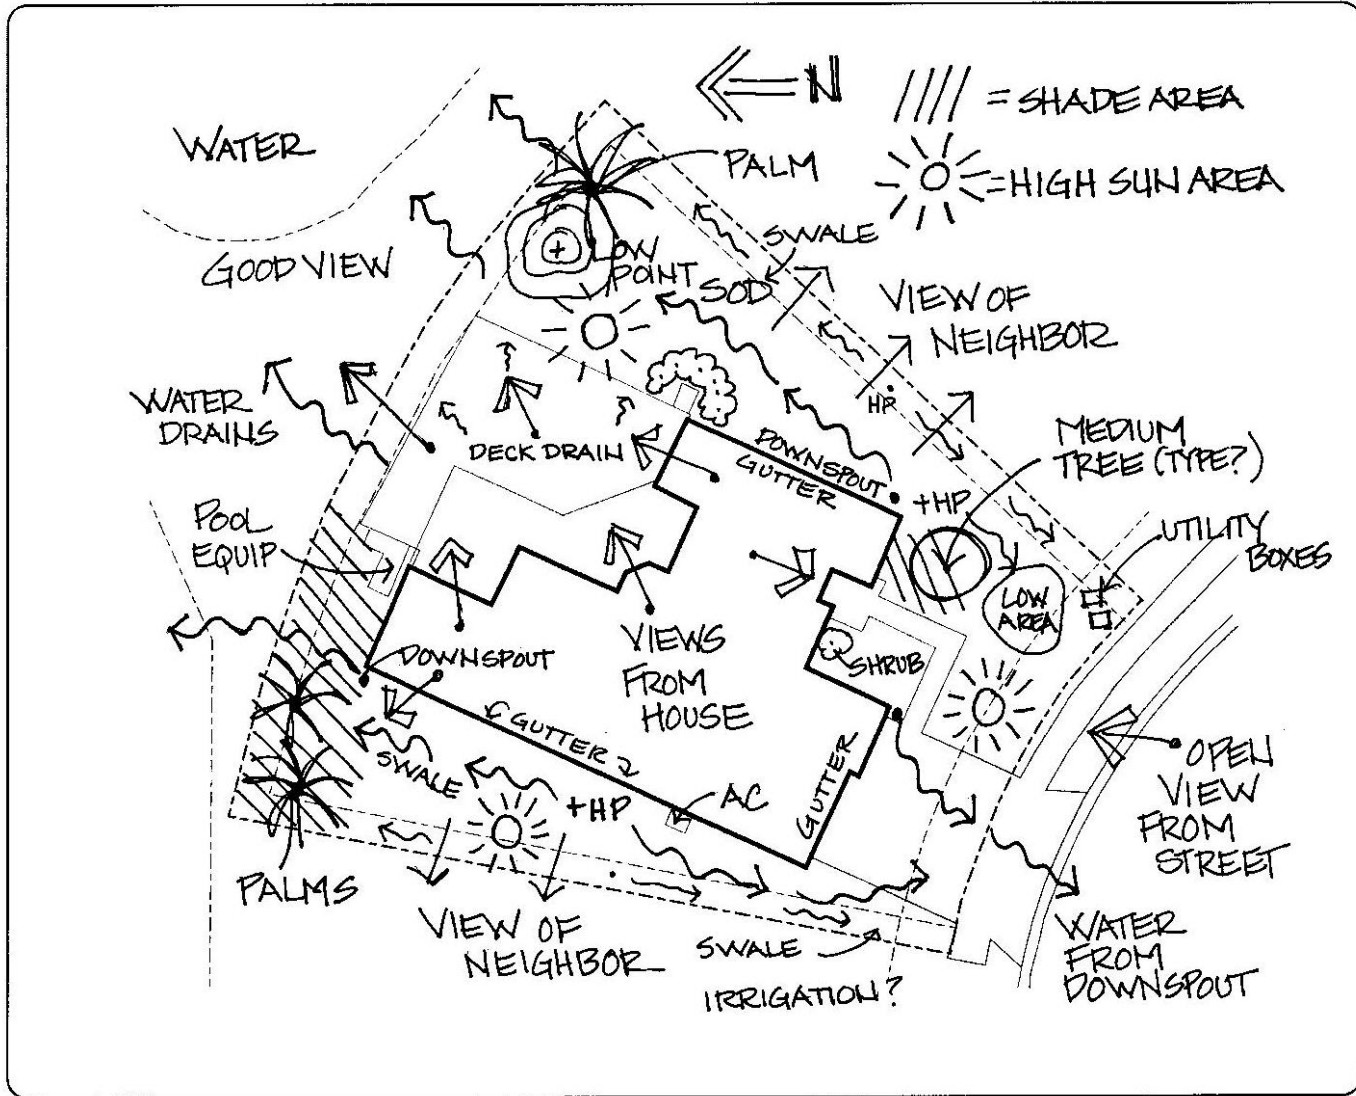 N
= SHADE AREA
WATER
PALM
= HIGH SUN AREA
SWALE
GOOD VIEW
LOW
POINT
SOD
VIEW OF
NEIGHBOR
HP
WATER
DRAINS
DECK DRAIN
DOWNSPOUT
GUTTER
MEDIUM
TREE (TYPE?)
+HP
POOL
EQUIP
UTILITY
BOXES
LOW
AREA
VIEWS
FROM
HOUSE
SHRUB
DOWNSPOUT
GUTTER
SWALE
+HP
AC
GUTTER
OPEN
VIEW
FROM
STREET
PALMS
VIEW OF
NEIGHBOR
SWALE
IRRIGATION?
WATER
FROM
DOWNSPOUT